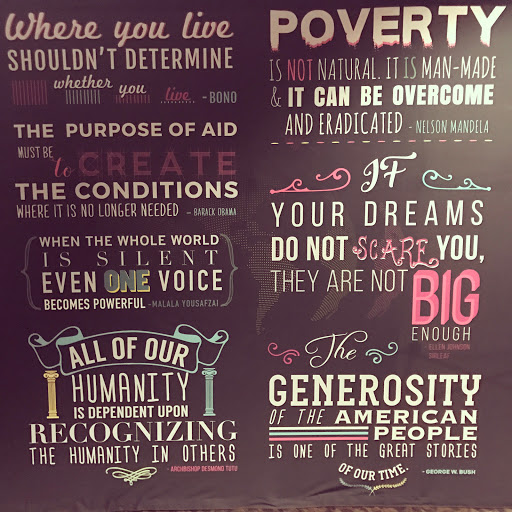 Where you live
SHOULDN'T DETERMINE
whether you live - BONO
THE PURPOSE OF AID
MUST BE to CREATE
THE CONDITIONS
WHERE IT IS NO LONGER NEEDED - BARACK OBAMA
WHEN THE WHOLE WORLD
IS SILENT
EVEN ONE VOICE
BECOMES POWERFUL - MALALA YOUSAFZAI
ALL OF OUR
HUMANITY
IS DEPENDENT UPON
RECOGNIZING
THE HUMANITY IN OTHERS
- ARCHBISHOP DESMOND TUTU
POVERTY
IS NOT NATURAL. IT IS MAN-MADE
& IT CAN BE OVERCOME
AND ERADICATED - NELSON MANDELA
IF
YOUR DREAMS
DO NOT SCARE YOU,
THEY ARE NOT BIG
ENOUGH
- ELLEN JOHNSON
SIRLEAF
The
GENEROSITY
OF THE AMERICAN
PEOPLE
IS ONE OF THE GREAT STORIES
OF OUR TIME. - GEORGE W. BUSH